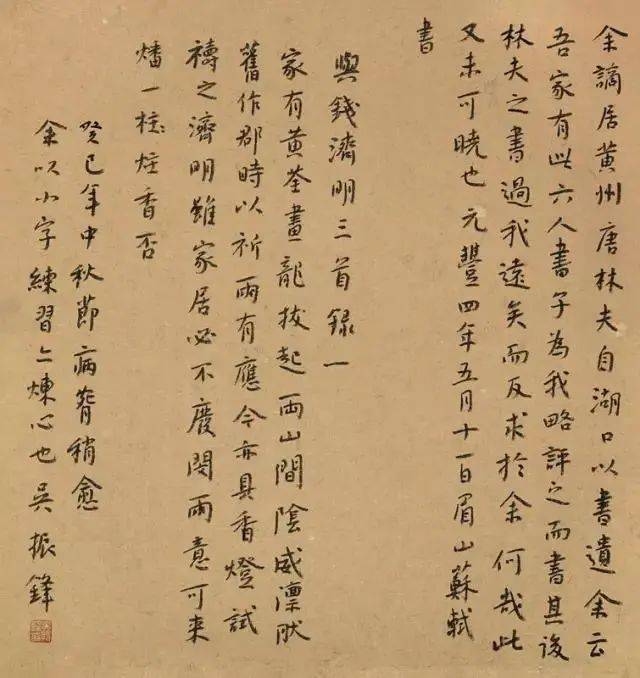 余謫居黄州唐林夫自湖口以書遺余云
吾家有此六人書子為我略評之而書其後
林夫之書過我遠矣而反求於余何哉此
又未可曉也元豐四年五月十一日眉山蘇軾
書
與錢濟明三首録一
家有黄荃畫龍拔起兩山間陰威凛然
舊作郡時以祈雨有應今亦具香燈試
禱之濟明雖家居必不廢閔雨意可来
燔一柱炷香否
癸巳年中秋節病脊稍愈
余以小字練習煉心也吳振鋒